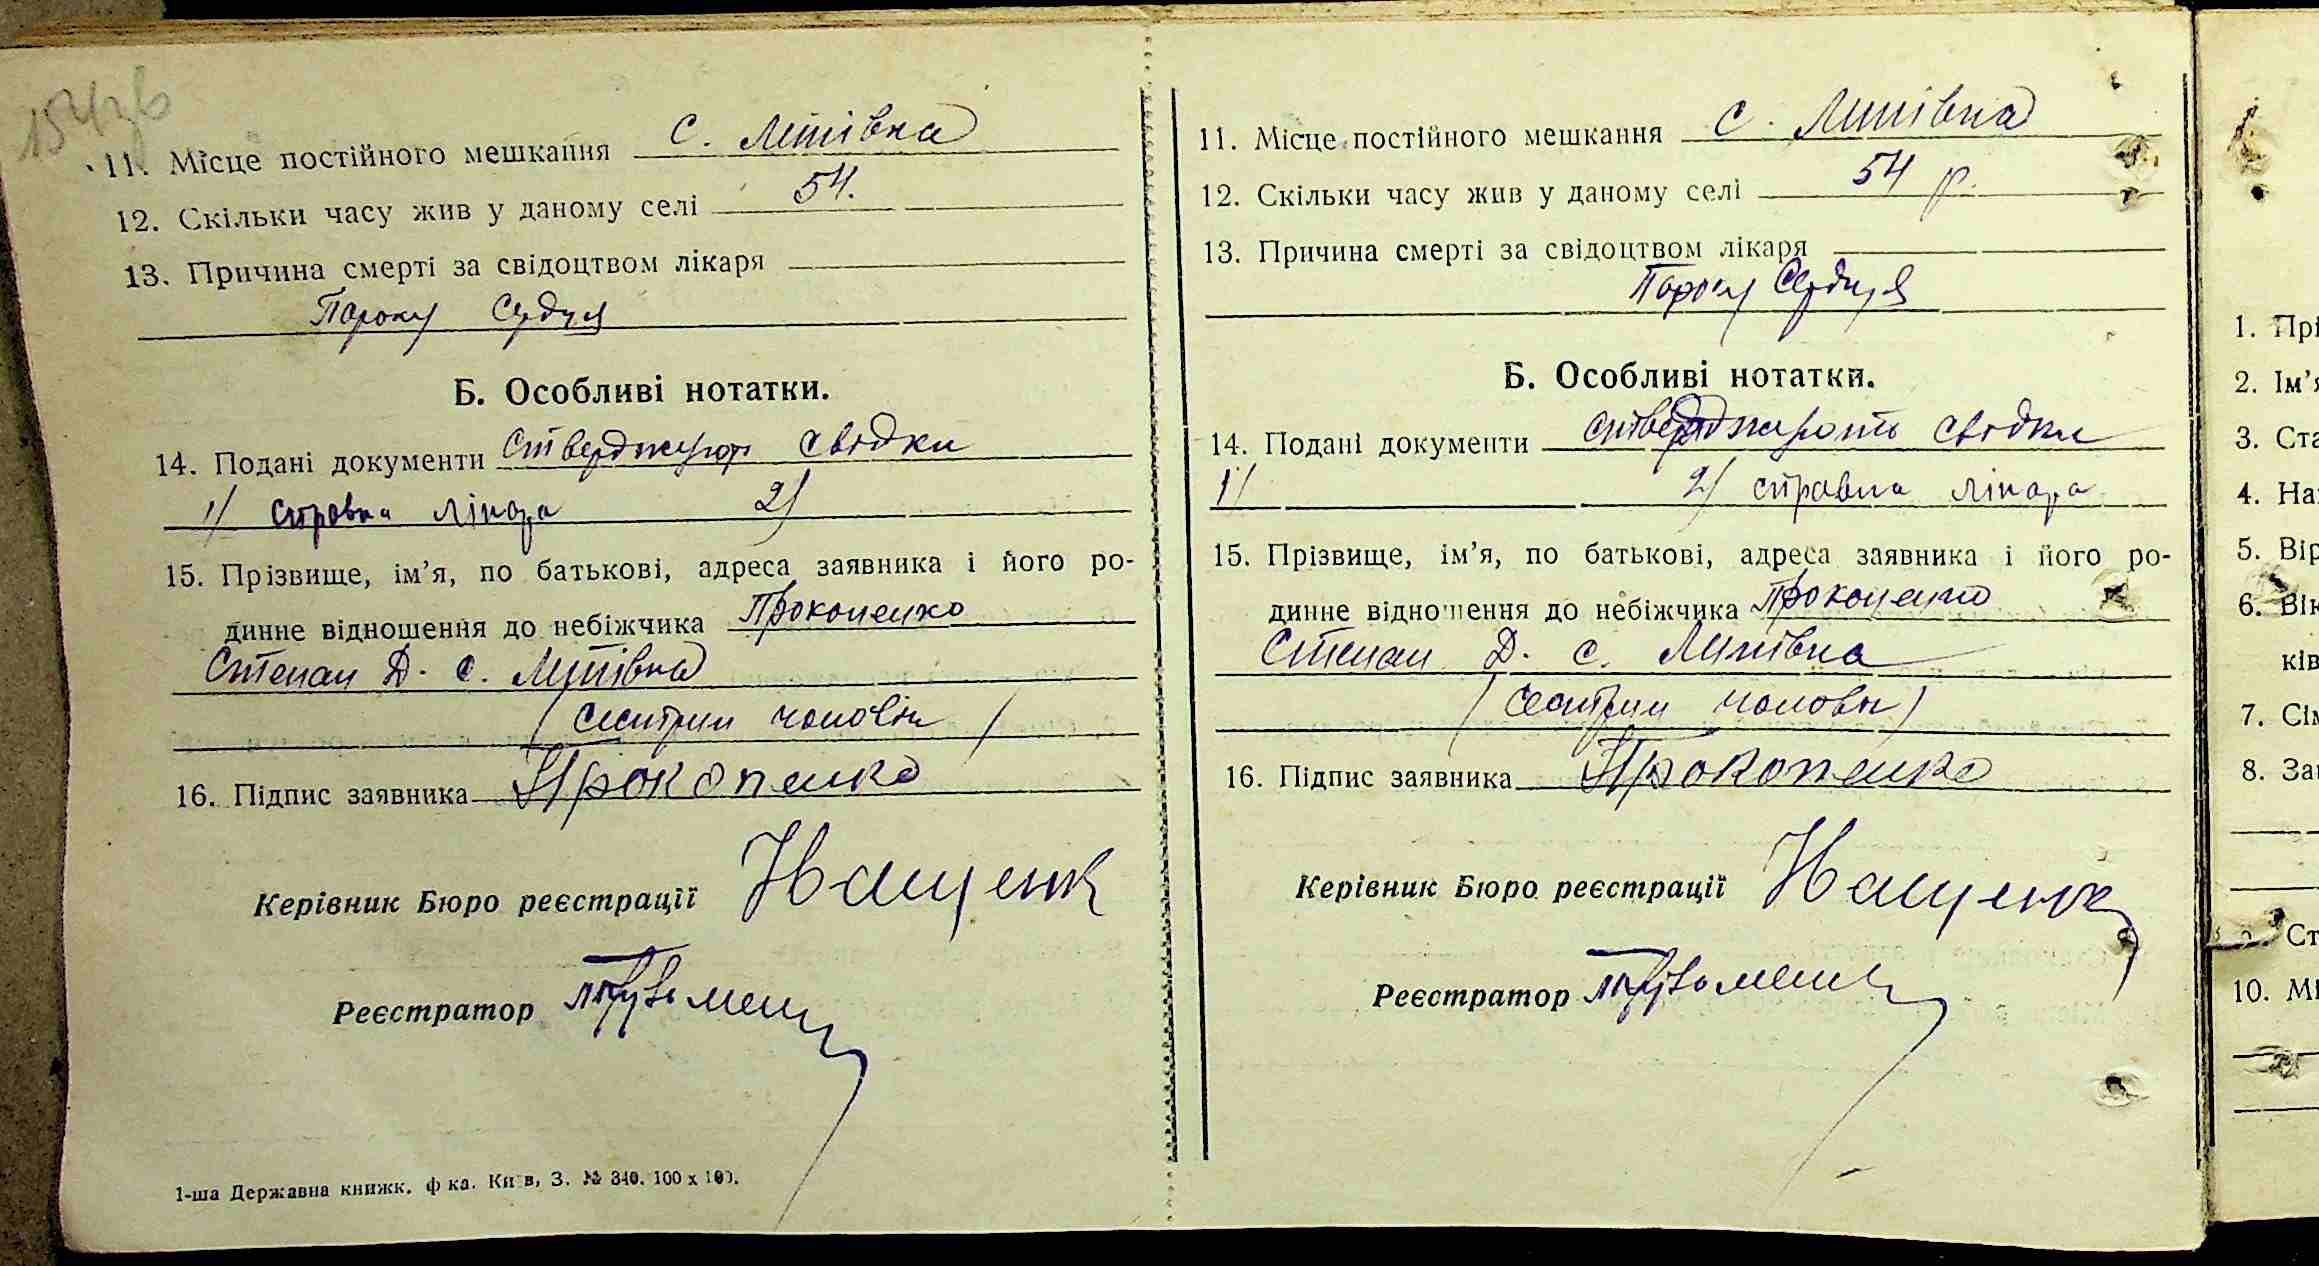 154зв
11. Місце постійного мешкання с. Липівка
12. Скільки часу жив у даному селі 54.
13. Причина смерті за свідоцтвом лікаря
Пороку Сердця
Б. Особливі нотатки.
14. Подані документи Стверджують свідки
1/ справка лікара 2/
15. Прізвище, ім’я, по батькові, адреса заявника і його ро-
динне відношення до небіжчика Прокопенко
Степан Д. с. Липівка
(сестрин чоловік)
16. Підпис заявника Прокопенко
Керівник Бюро реєстрації
Реєстратор
1-ша Державна книжк. ф ка. Київ, З. № 340. 100 х 100.
11. Місце постійного мешкання с. Липівка
12. Скільки часу жив у даному селі 54 р.
13. Причина смерті за свідоцтвом лікаря
Пороку Сердця
Б. Особливі нотатки.
14. Подані документи стверджують свідки
1/ 2/ справка лікара
15. Прізвище, ім’я, по батькові, адреса заявника і його ро-
динне відношення до небіжчика Прокопенко
Степан Д. с. Липівка
(сестрин чоловік)
16. Підпис заявника Прокопенко
Керівник Бюро реєстрації
Реєстратор
1. Прі
2. Ім’я
3. Ста
4. На
5. Вір
6. Вік
ків
7. Сім
8. За
Ст
10. Мі